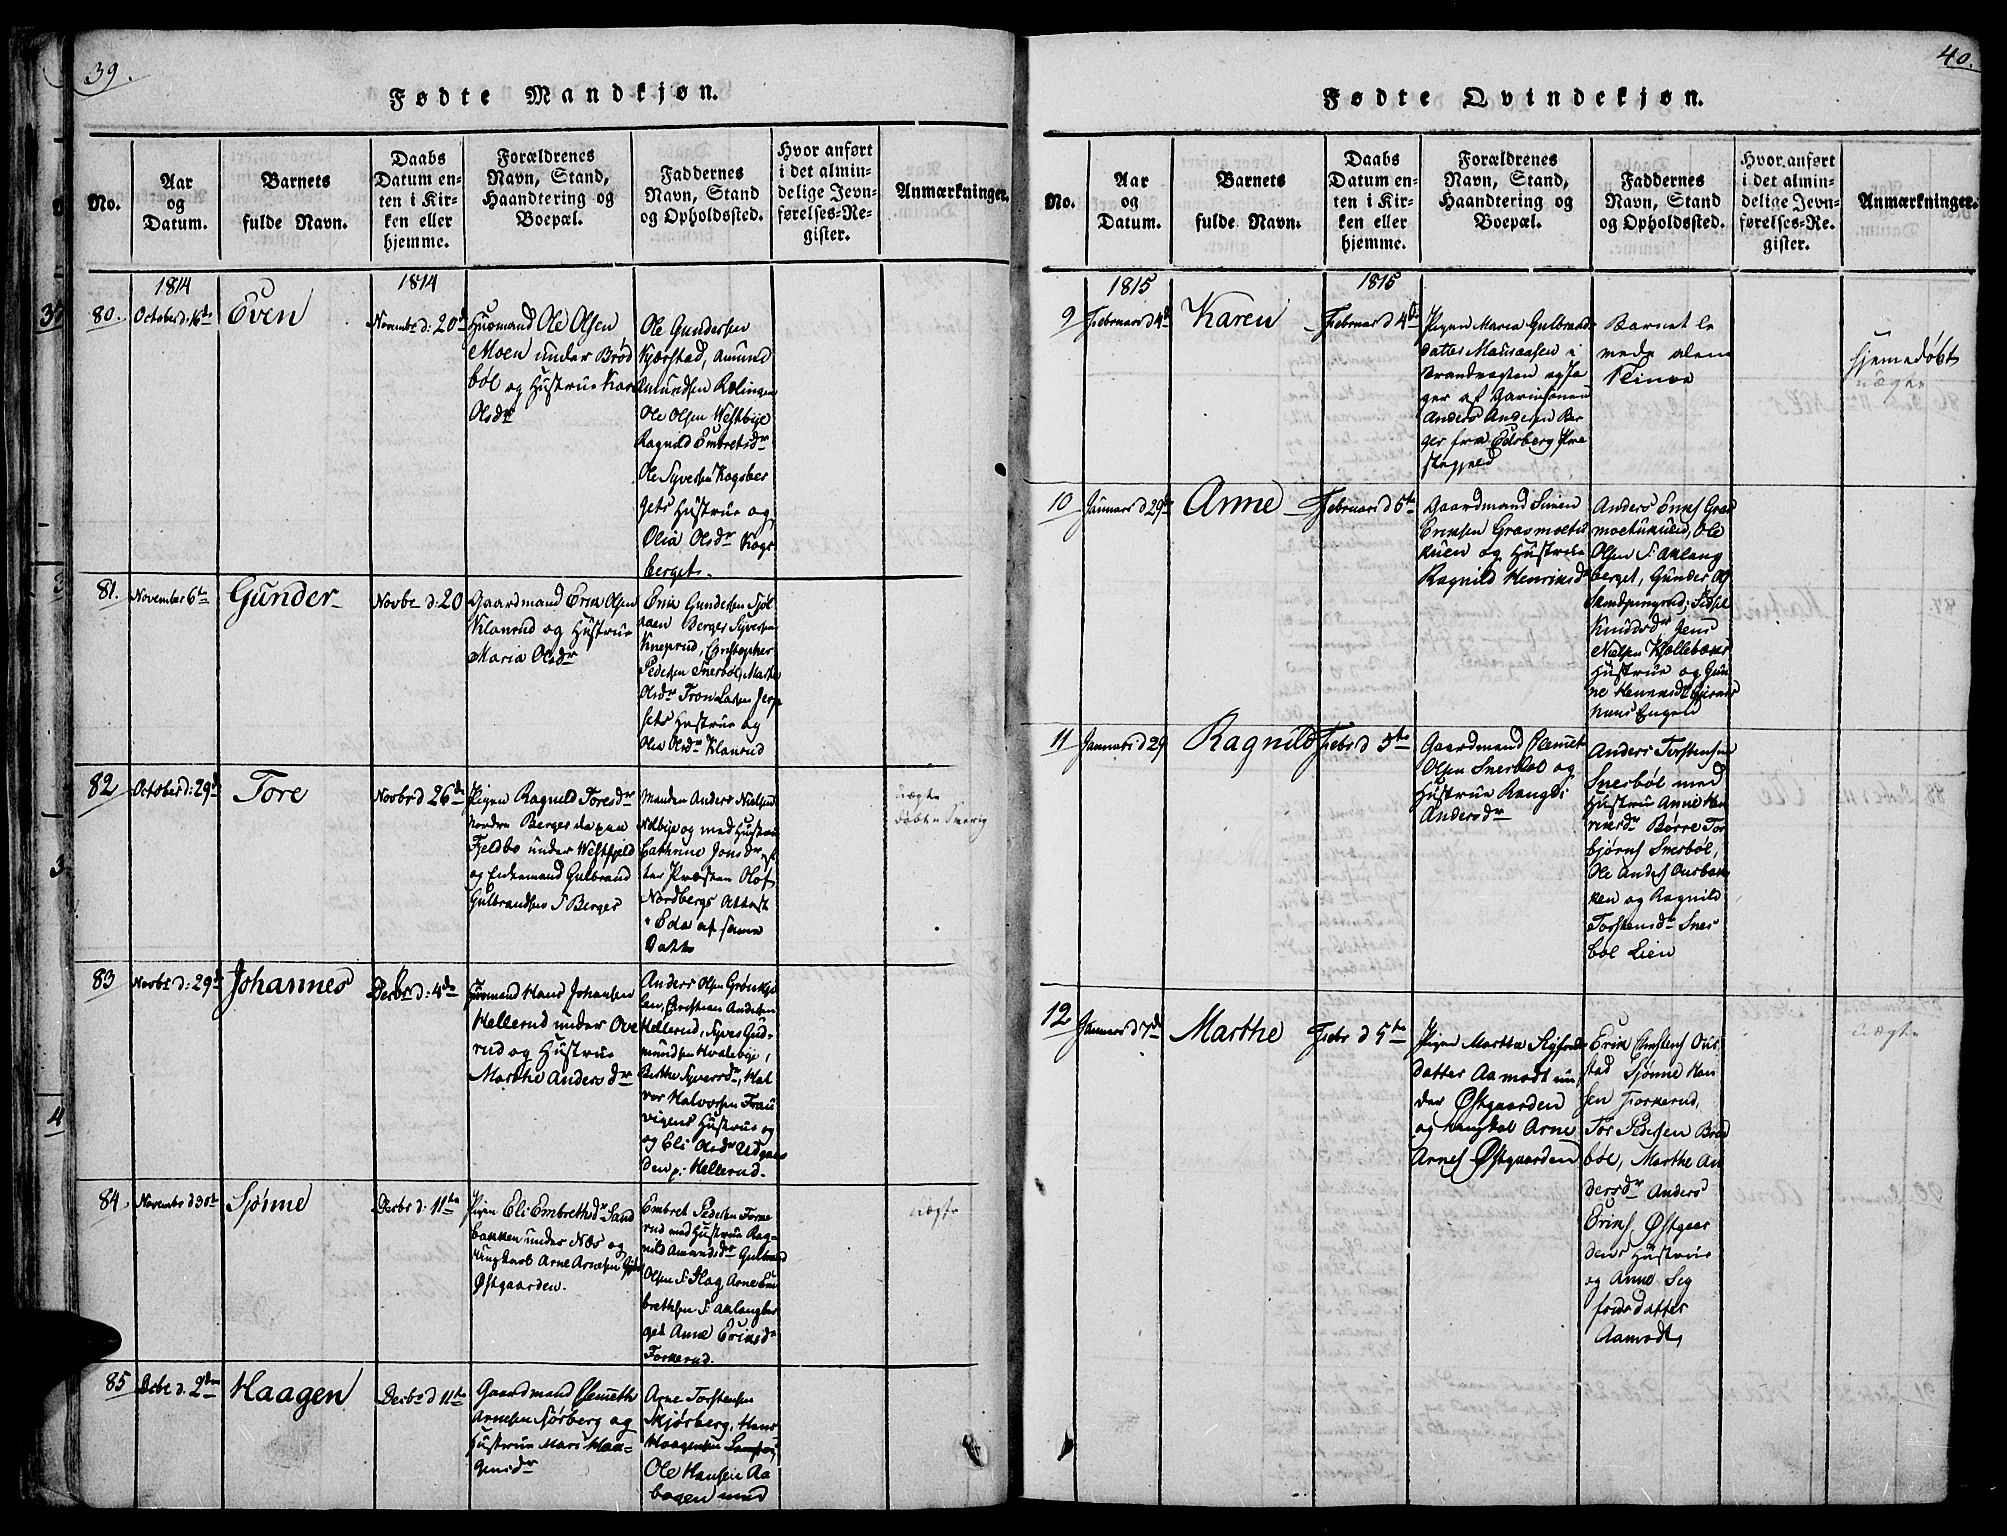 39.
Fødte Mandkjøn.
No.
Aar
og
Datum.
Barnets
fulde Navn.
Daabs
Datum en-
ten i Kir-
ken eller
hjemme.
Forældrenes
Navn, Stand,
Haandtering og
Boepæl.
Faddernes
Navn, Stand
og Opholdssted.
Hvor anført
i det almin-
delige Jevn-
førelses-Re-
gister.
Anmærkninger.
1814
1814
80.
October d: 16de
Even
Novembr d: 20de
Huusmand Ole Olsen
Moen under Brød
bøl og Hustrue Kari
Olsdr
Ole Gundersen
Kjærstad, Amund
Amundsen
Ole Olsen Westbye
Ragnild Embretsdr
Ole Syversen Kogsber
gets Hustrue og
Olia Olsdr Kogs
berget.
81.
November 6te
Gunder
Novbr d: 20
Gaardmand Erik Olsen
Klanrud og Hustrue
Maria Olsdr
Erik Gundersen
Berger Syversen
Kneprud, Christopher
Pedersen Snerbøl, Marthe
Olsdr Tron Larsen
sets Hustrue og
Olia Olsdr Klanrud
82
October d: 29de
Tore
Novbr d 26de
Pigen Ragnild Toresdr
Nordre Berger
Fjeldbo under Westfjeld
og Enkemand Gulbrand
Gulbrandsen S Berger
Manden Anders Nielsen
og med Hustrue
Cathrine Jonsdr ef
ter Præsten Olof
Nordbergs Attest
i Eda af samme
Datto
uægte
døbt i Sverig
83
Novbr d: 29de
Johannes
Decbr d: 4de
Huusmand Hans Johansen
Hellerud under Ove
rud og Hustrue
Marthe Andersdr
Anders Olsen
Christian Andersen
Hellerud, Syver Gud-
mundsen Hvalebye,
Berthe Syversdr, Hal
vor Halvorsen
vigens Hustrue og
og Eli Olsdr
den p: Hellerud.
84.
Novembr d 30te
Sjønne
Decbr d: 11te
Pigen Eli Embrethsdr Sand
bakken under Næs og
Ungkarl Arne Arnesen
Østgaarden.
Embret Pedersen Torke
rud med Hustrue Rag-
nild Amundsdr Gulbrand
Olsen S: Hag, Arne Em
brethsen S: Aklangber
get Anne Eriksdr
Torkerud.
uægte
85
Decbr d. 2den
Haagen
Decbr d 11te
Gaardmand Clemeth
Arnesen Sørberg og
Hustrue Mari Haa-
gensdr
Arne Torstensen
Skjørberg, Hans
Haagensen
Ole Hansen Aa
bogen med
40.
Fødte Qvindekjøn.
No.
Aar
og
Datum.
Barnets
fulde Navn.
Daabs
Datum en-
ten i Kir-
ken eller
hjemme.
Forældrenes
Navn, Stand,
Haandtering og
Boepæl.
Faddernes
Navn, Stand
og Opholdssted.
Hvor anført
i det almin-
delige Jevn-
førelses-Re-
gister.
Anmærkninger.
1815
1815
9
Februari d 4de
Karen
Februar d 4de
Pigen Maria Gulbrands
datter i
Strandvogten og Jæ
ger af Garnisonen
Anders Andersen Ber
ger fra Edsberg Præ
stegjeld
Barnet le
vede alene
1 Time
hjemedøbt
uægte
10
Januari d 29de
Anne
Februari d 5te
Gaardmand Simen
Eriksen Grasmoetu
kuen og Hustrue
Ragnild Henriksdr
Anders Eriks Gras
moetukuen, Ole
Olsen S: Aklang
berget, Gunder
Sidsel
Knudsdr Jens
Nielsen
Hustrue og Gun
ne
11
Januari d 29
Ragnild
Febr d 5te
Gaardmand Clemet
Olsen Snerbøl og
Hustrue Rangdi
Andersdr
Anders Torstensen
Snerbøl med
Hustru Anne Hen
riksdr Børre Tor
bjørns Snerbøl,
Ole Anders
ken og Ragnild
Torstensdr Sner
bøl Lien
12
Januari d 7de
Marthe
Febr d 5te
Pigen Marthe Sigfreds
datter Aamodt un
der Østgaarden
og Ungkal Arne
Arnes Østgaarden
Erik
stad Sjønne Han
sen Torkerud,
Tor Pedersen Brød
bøl, Marthe An
dersdr Anders
Eriks Østgaar
dens Hustrue
og Anne Sig
freds datter
Aamodt,
uægte